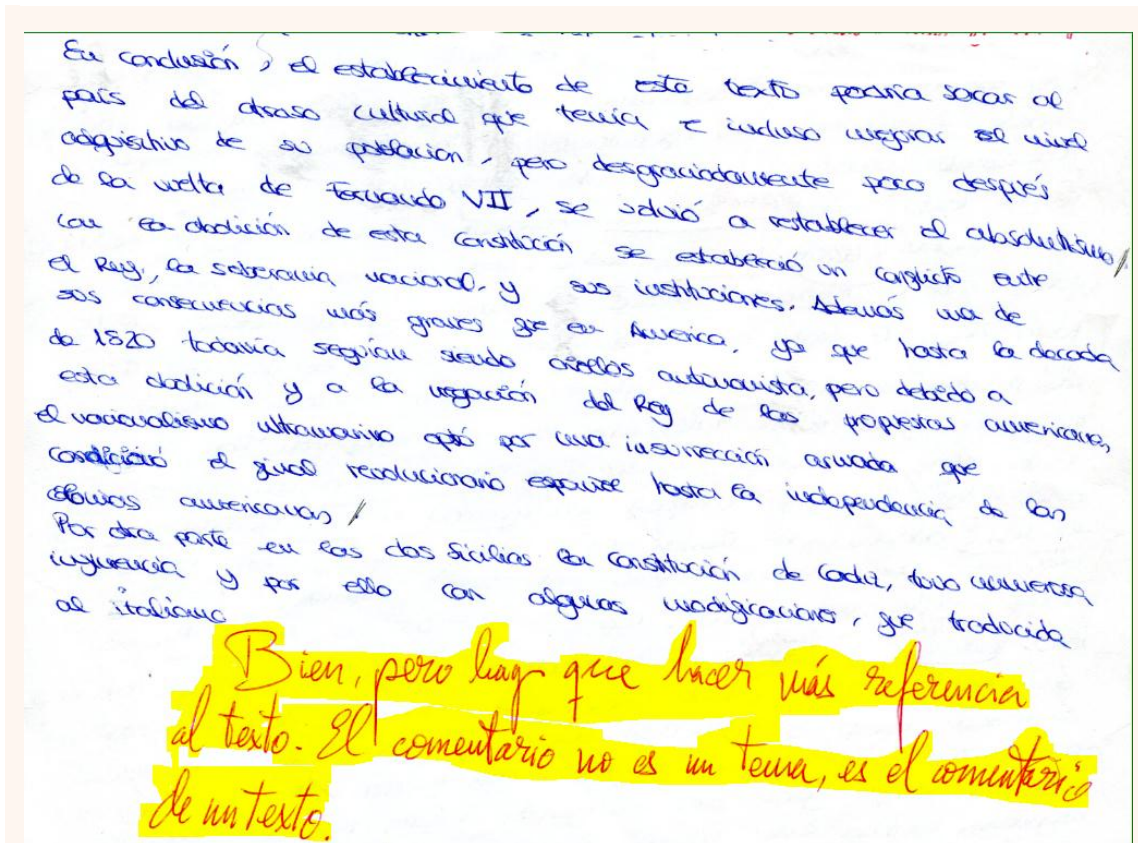 En conclusión, el establecimiento de este texto podría sacar al
país del atraso cultural que tenía e incluso mejorar el nivel
adquisitivo de su población, pero desgraciadamente poco después
de la vuelta de Fernando VII, se volvió a restablecer el absolutismo
con la abolición de esta constitución se estableció un conflicto entre
el Rey, la soberania nacional, y sus instituciones. Además una de
sus consecuencias más graves fue en America, ya que hasta la decada
de 1820 todavía seguían siendo autonomista, pero debido a
esta abolición y a la negación del Rey de las propuestas americanas,
el nacionalismo ultramarino optó por una insurrección armada que
condicionó el final revolucionario español hasta la independencia de las
colonias americanas
Por otra parte en las dos Sicilias la constitución de Cadiz, tuvo numerosa
influencia y por ello con algunas modificaciones, fue traducida
al italiano
Bien, pero hay que hacer más referencia
al texto. El comentario no es un tema, es el comentario
de un texto.